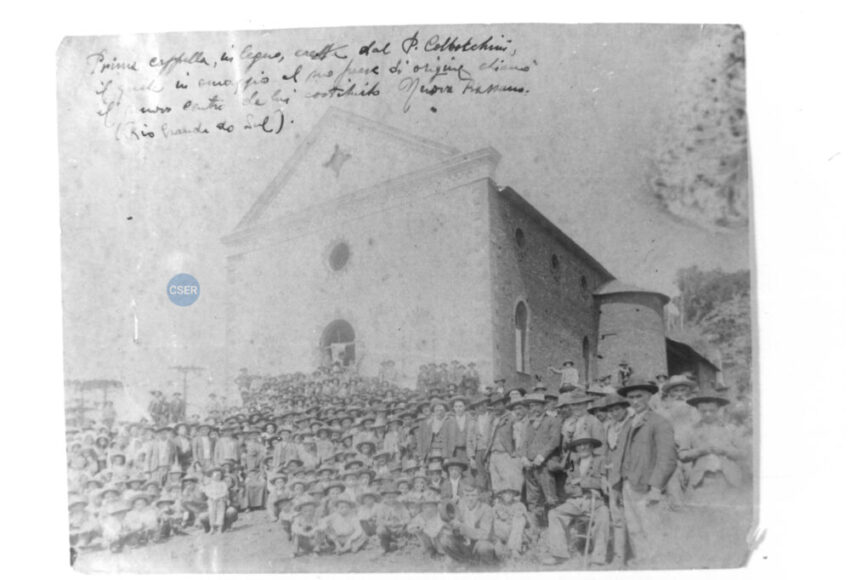 Prima cappella, in legno, eretta dal P. Colbacchini,
il quale in omaggio al suo paese di origine chiamò
il nuovo centro da lui costituito Nuova Bassano.
(Rio Grande do Sul).
CSER